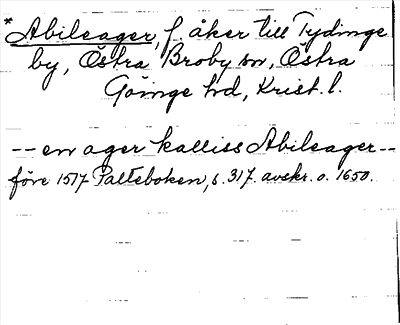 * Abileager, f. åker till Tydinge
by, Östra Broby sn, Östra
Göinge hd, Krist. l.
-- en ager kalliss Abileager --
före 1517 Palteboken, s. 317. avskr. o. 1650.